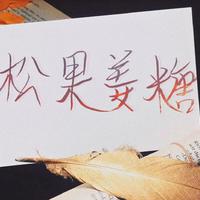 松果姜糖